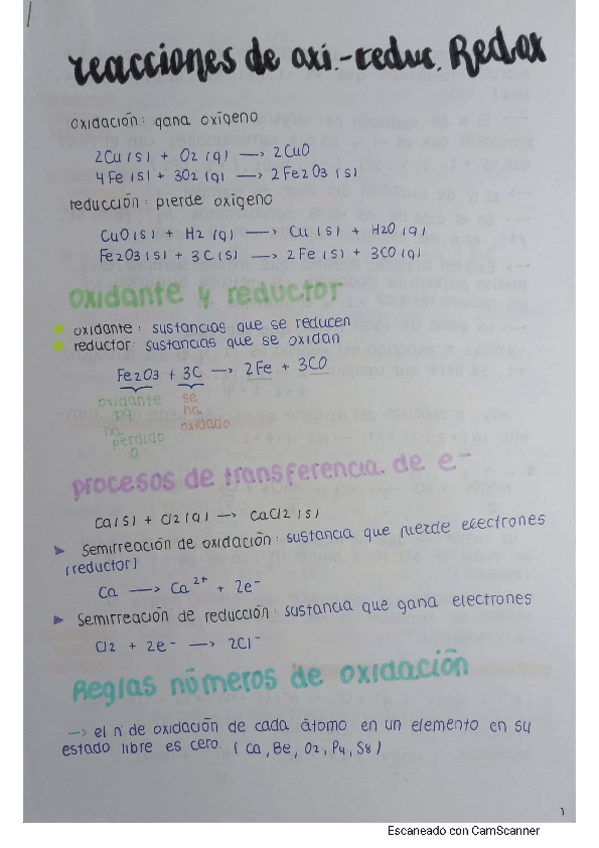 reacciones de oxi.-reduc. Redox
oxidación: gana oxígeno
2Cu(s) + O2(g) → 2CuO
4Fe(s) + 3O2(g) → 2Fe2O3(s)
reducción: pierde oxígeno
CuO(s) + H2(g) → Cu(s) + H2O(g)
Fe2O3(s) + 3C(s) → 2Fe(s) + 3CO(g)
oxidante y reductor
oxidante: sustancias que se reducen
reductor: sustancias que se oxidan
Fe2O3 + 3C → 2Fe + 3CO
oxidante se
pq ha
ha oxidado
perdido
O
procesos de transferencia de e-
Ca(s) + Cl2(g) → CaCl2(s)
➤ semirreación de oxidación: sustancia que pierde electrones
(reductor)
Ca → Ca²⁺ + 2e⁻
➤ semirreación de reducción: sustancia que gana electrones
Cl2 + 2e⁻ → 2Cl⁻
Reglas números de oxidación
→ el nº de oxidación de cada átomo en un elemento en su
estado libre es cero. (Ca, Be, O2, P4, S8)
1
Escaneado con CamScanner